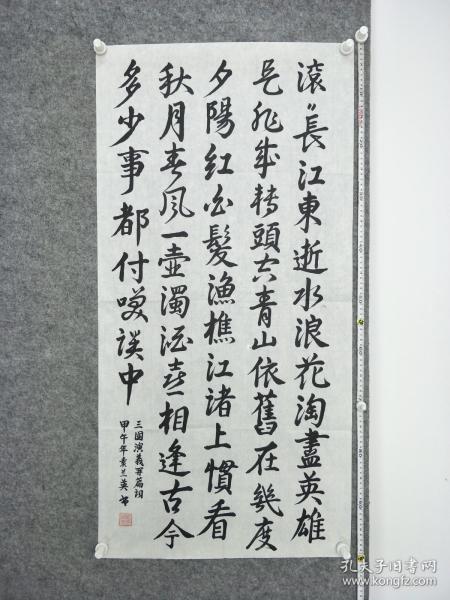 滾〃長江東逝水浪花淘盡英雄
是非成轉頭空青山依舊在幾度
夕陽紅白髮漁樵江渚上慣看
秋月春风一壺濁酒喜相逢古今
多少事都付笑談中
三国演義开篇词
甲午年袁兰英书
孔夫子旧书网
www.kongfz.com